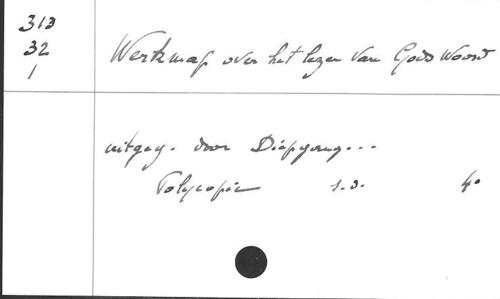 313
32
1
Werkmap over het lezen van Gods Woord
uitgeg. door Diepgang...
Polycopie s.d. 4°